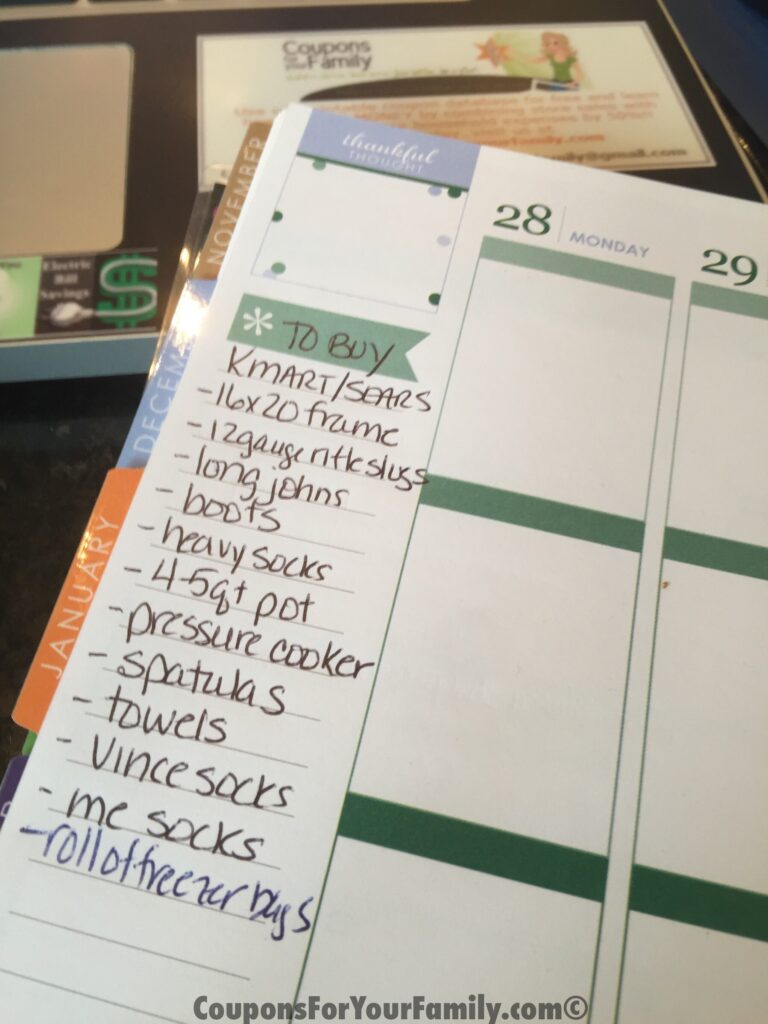 Coupons
for your Family
thankful
THOUGHT
NOVEMBER
28 MONDAY
29
Electric
Bill
Savings
$
* TO BUY
KMART/SEARS
-16x20 frame
-12gauge rifle slugs
-long johns
- boots
- heavy socks
- 4-5qt pot
- pressure cooker
- spatulas
- towels
- Vince socks
- me socks
-roll of freezer bags
DECEM
JANUARY
CouponsForYourFamily.com©